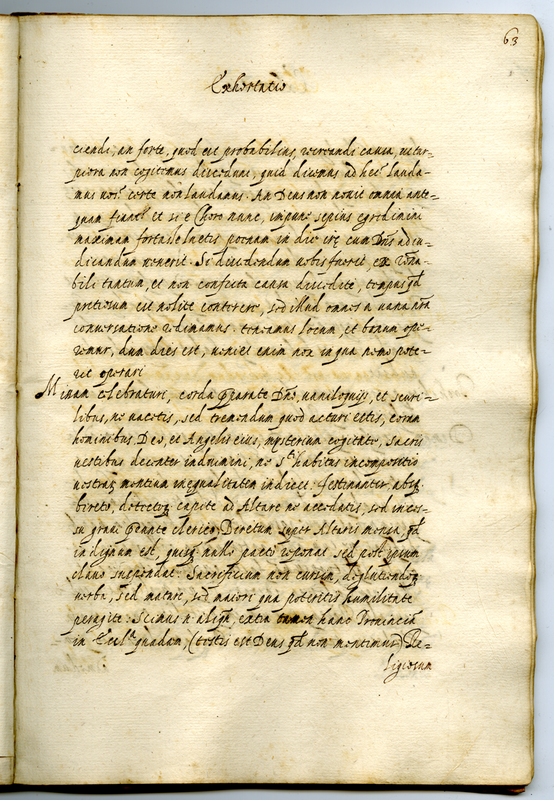 63
Exhortatio
ciendi, an forte, quod est probabilius, recreandi causa, ut tur=
piora non cogitemus discedimus, quid dicemus ad hec? lauda=
mus vos? certe non laudamus. An Deus non novit omnia ante=
quam fiant? et si è Choro nunc, impune sepius egredimini
maximam fortasse luetis poenam in die irę cum Dñs ad iu=
dicandum venerit. Si discedendum vobis fuerit, ex rōna=
bili tantum, et non conficta causa discedite, tempus q̄d
pretiosum est nolite conterere, sed illud omnes a vana nr̄a
conversatione redimamus. teneamus locum, et bonum ope=
remur, dum dies est, veniet enim nox in qua nemo pote=
rit operari
Missam celebraturi, corda p̄parate Dño, vaniloquijs, et scurri=
libus, ne vacetis, sed tremendum quod acturi estis, coram
hominibus Deo, et Angelis eius, mysterium cogitate, sacris
vestibus decenter induimini, ne habitus incompositio
nostraȝ mentium inequalitatem indicet: festinanter absq.
bireto, detectoq. capite ad Altare ne accedatis, sed inces=
su gravi p̄eunte clerico, Biretum super Altaris mensa, q̄d
indignum est, quisq. nullo pacto reponat sed post ipsum
clavo suspendat: Sacrificium non cursim, deglutiendoq.
verba, sed mature, sed maiori qua poteritis humilitate
peragite: Scimus n. aliqn̄, extra tamen hanc Provinciā
in Eccl.ª quadam, (testis est Deus q̄d non mentimur) Re=
ligiosum